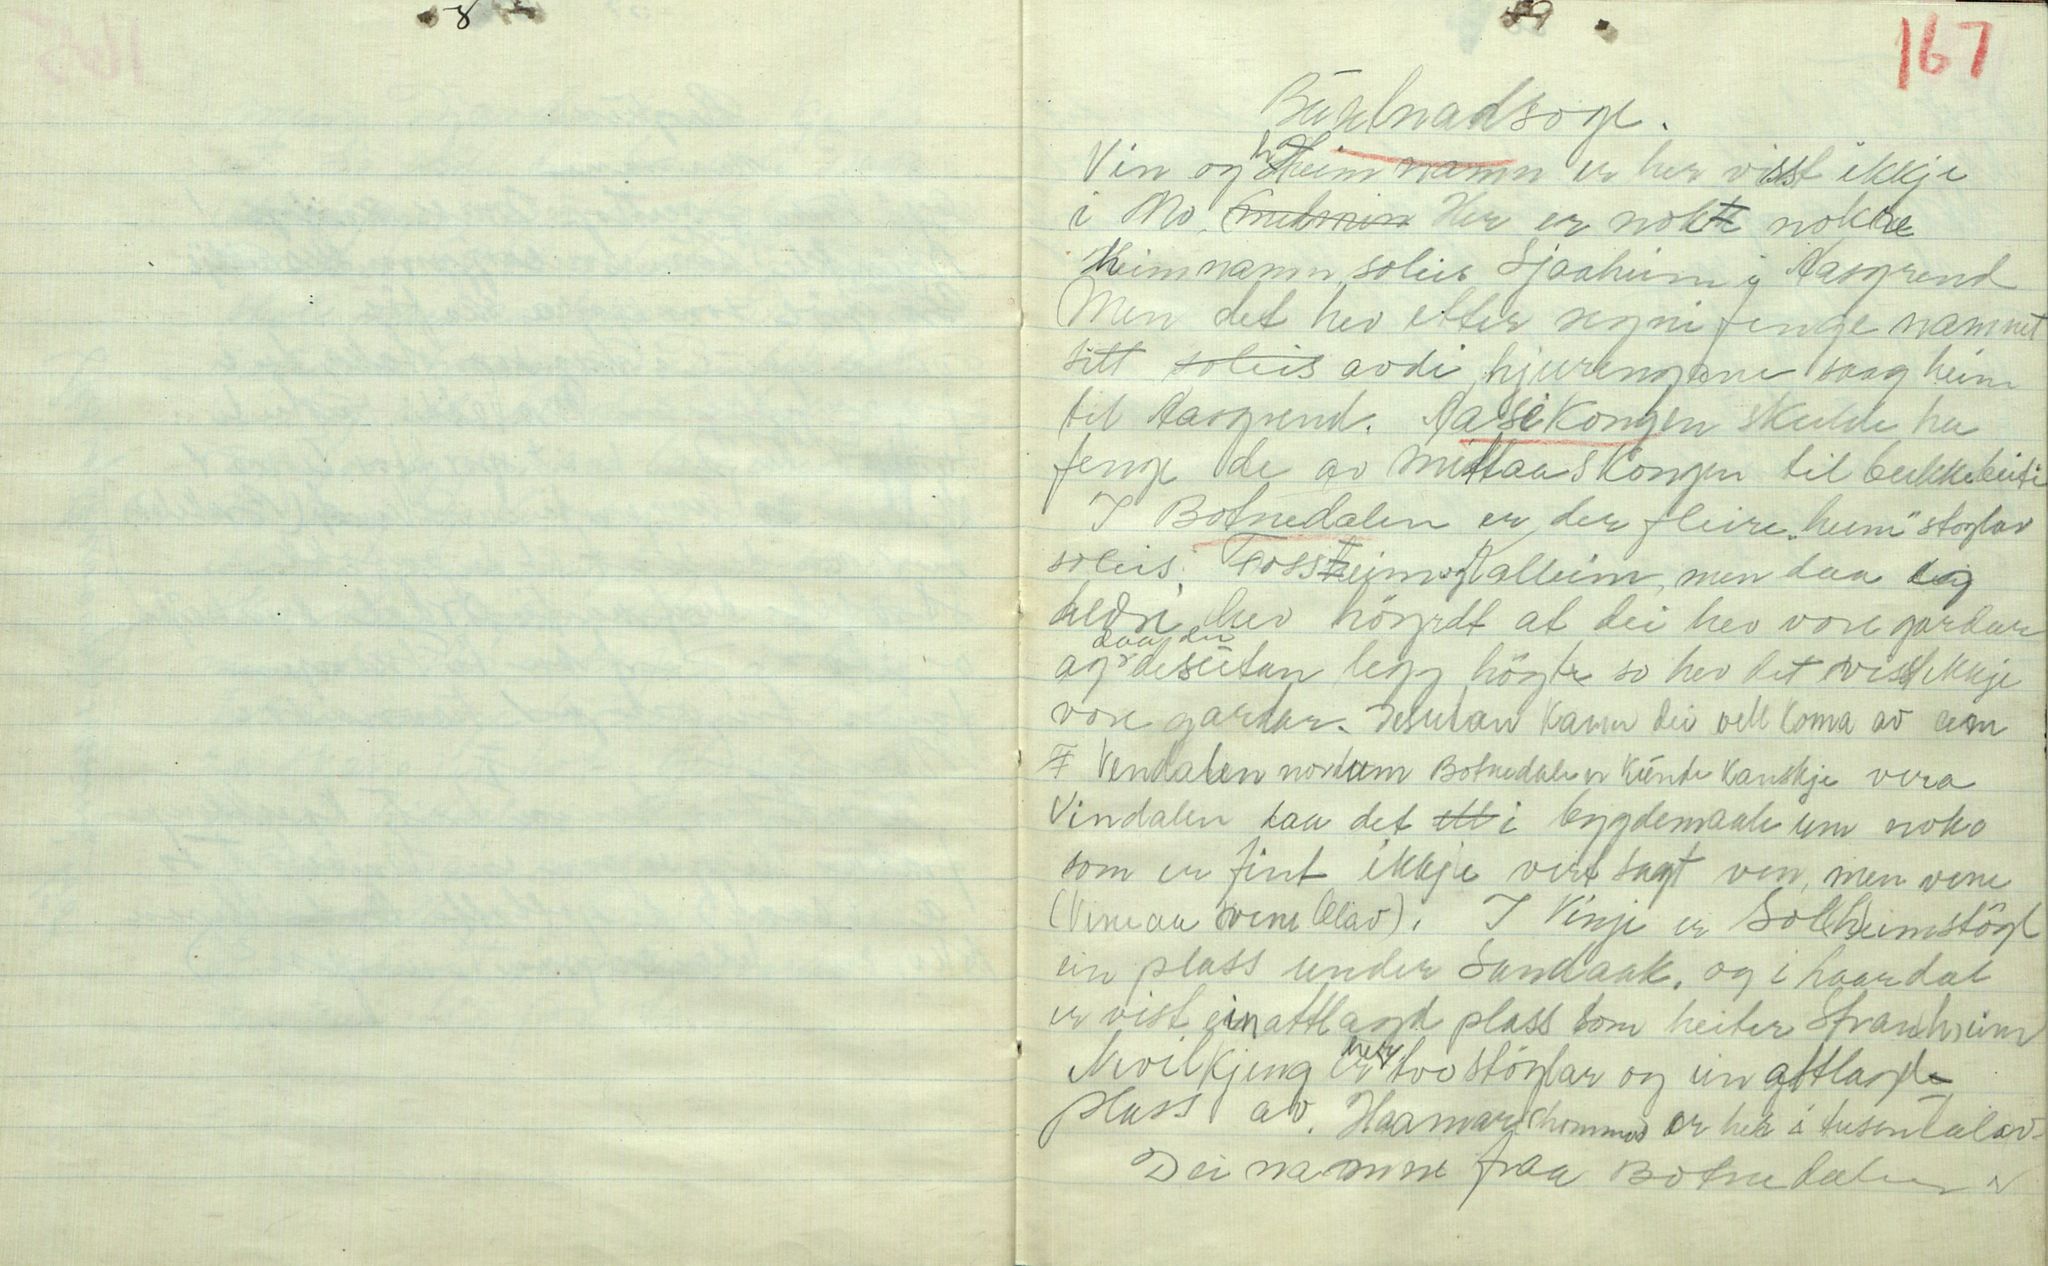 167
Busetnadsoge.
Vin og heim namn er her visst ikkje
i Mo. Her er nok nokre
Heimnamn, soleis Sjaaheim i Aasgrend
Men det hev etter segni fenge namnet
sitt soleis avdi hjuringane saag heim
til Aasgrend. Aasikongen skulde ha
fenge de av Mittaaskongen til bukkebeiti
I Botnedalen er der fleire "heim" stoylar
soleis: Fossheim og Kalleim, men daa eg
aldri hev höyrdt at dei hev vore gardar
og daa dei desutan legg högt so hev det visst ikkje
vore gardar. Desutan kann dei vell koma av
Vendalen nordum Botnedalen kunde kanskje vera
Vindalen daa det i bygdemaale um noko
som er fint ikkje vert sagt ven, men vene
(Vene aa vene Olav). I Vinje er Sol(h)eimstöyl
ein plass under Sandaak, og i haardal
er vist ein attlagd plass som heiter Stran(h)eim
Kvilkjeng er her tvo stöylar og ein attlagde
plass av. Haamarshommos er her i tusentalav.
Dei namne fraa Botnedalen